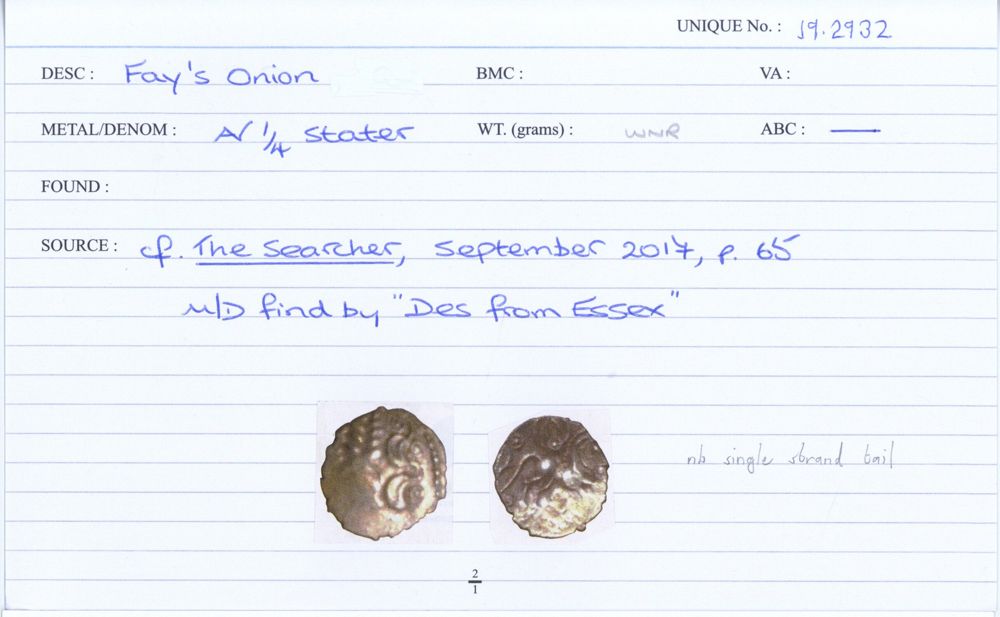 UNIQUE No. : 19.2932
DESC : Fay's Onion BMC : VA :
METAL/DENOM : AV 1/4 stater WT. (grams) : WNR ABC : —
FOUND :
SOURCE : cf. The Searcher, September 2017, p. 65
M/D find by "Des from Essex"
nb single strand tail
2/1